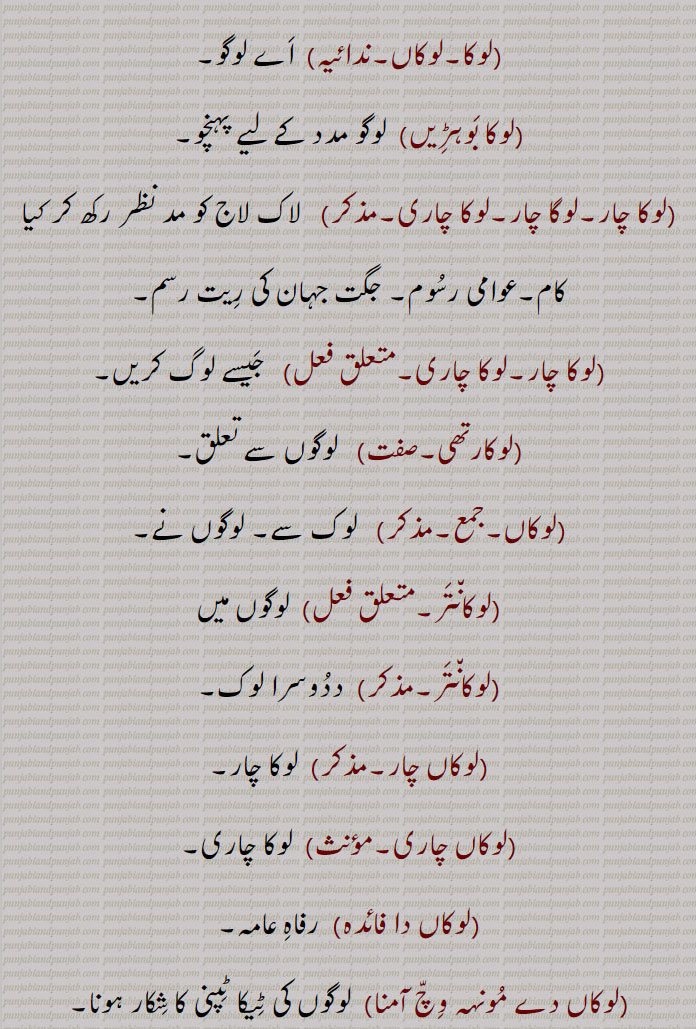 (لوکا۔لوکاں۔ندائیہ) اَے لوگو۔
(لوکا بَوہڑِیں) لوگو مدد کے لیے پہنچو۔
(لوکا چار۔لوگا چار۔لوکا چاری۔مذکر) لاک لاج کو مد نظر رکھ کر کیا
کام۔عوامی رسُوم۔ جگت جہان کی رِیت رسم۔
(لوکا چار۔لوکا چاری۔متعلق فعل) جَیسے لوگ کریں۔
(لوکارتھی۔صفت) لوگوں سے تعلق۔
(لوکاں۔جمع۔مذکر) لوک سے۔ لوگوں نے۔
(لوکانّتَر۔متعلق فعل) لوگوں میں
(لوکانّتَر۔مذکر) ددُوسرا لوک۔
(لوکاں چار۔مذکر) لوکا چار۔
(لوکاں چاری۔مؤنث) لوکا چاری۔
(لوکاں دا فائدہ) رفاہِ عامہ۔
(لوکاں دے مُونہہ وِچّ آمنا) لوگوں کی ٹِیکا ٹِپنی کا شِکار ہونا۔